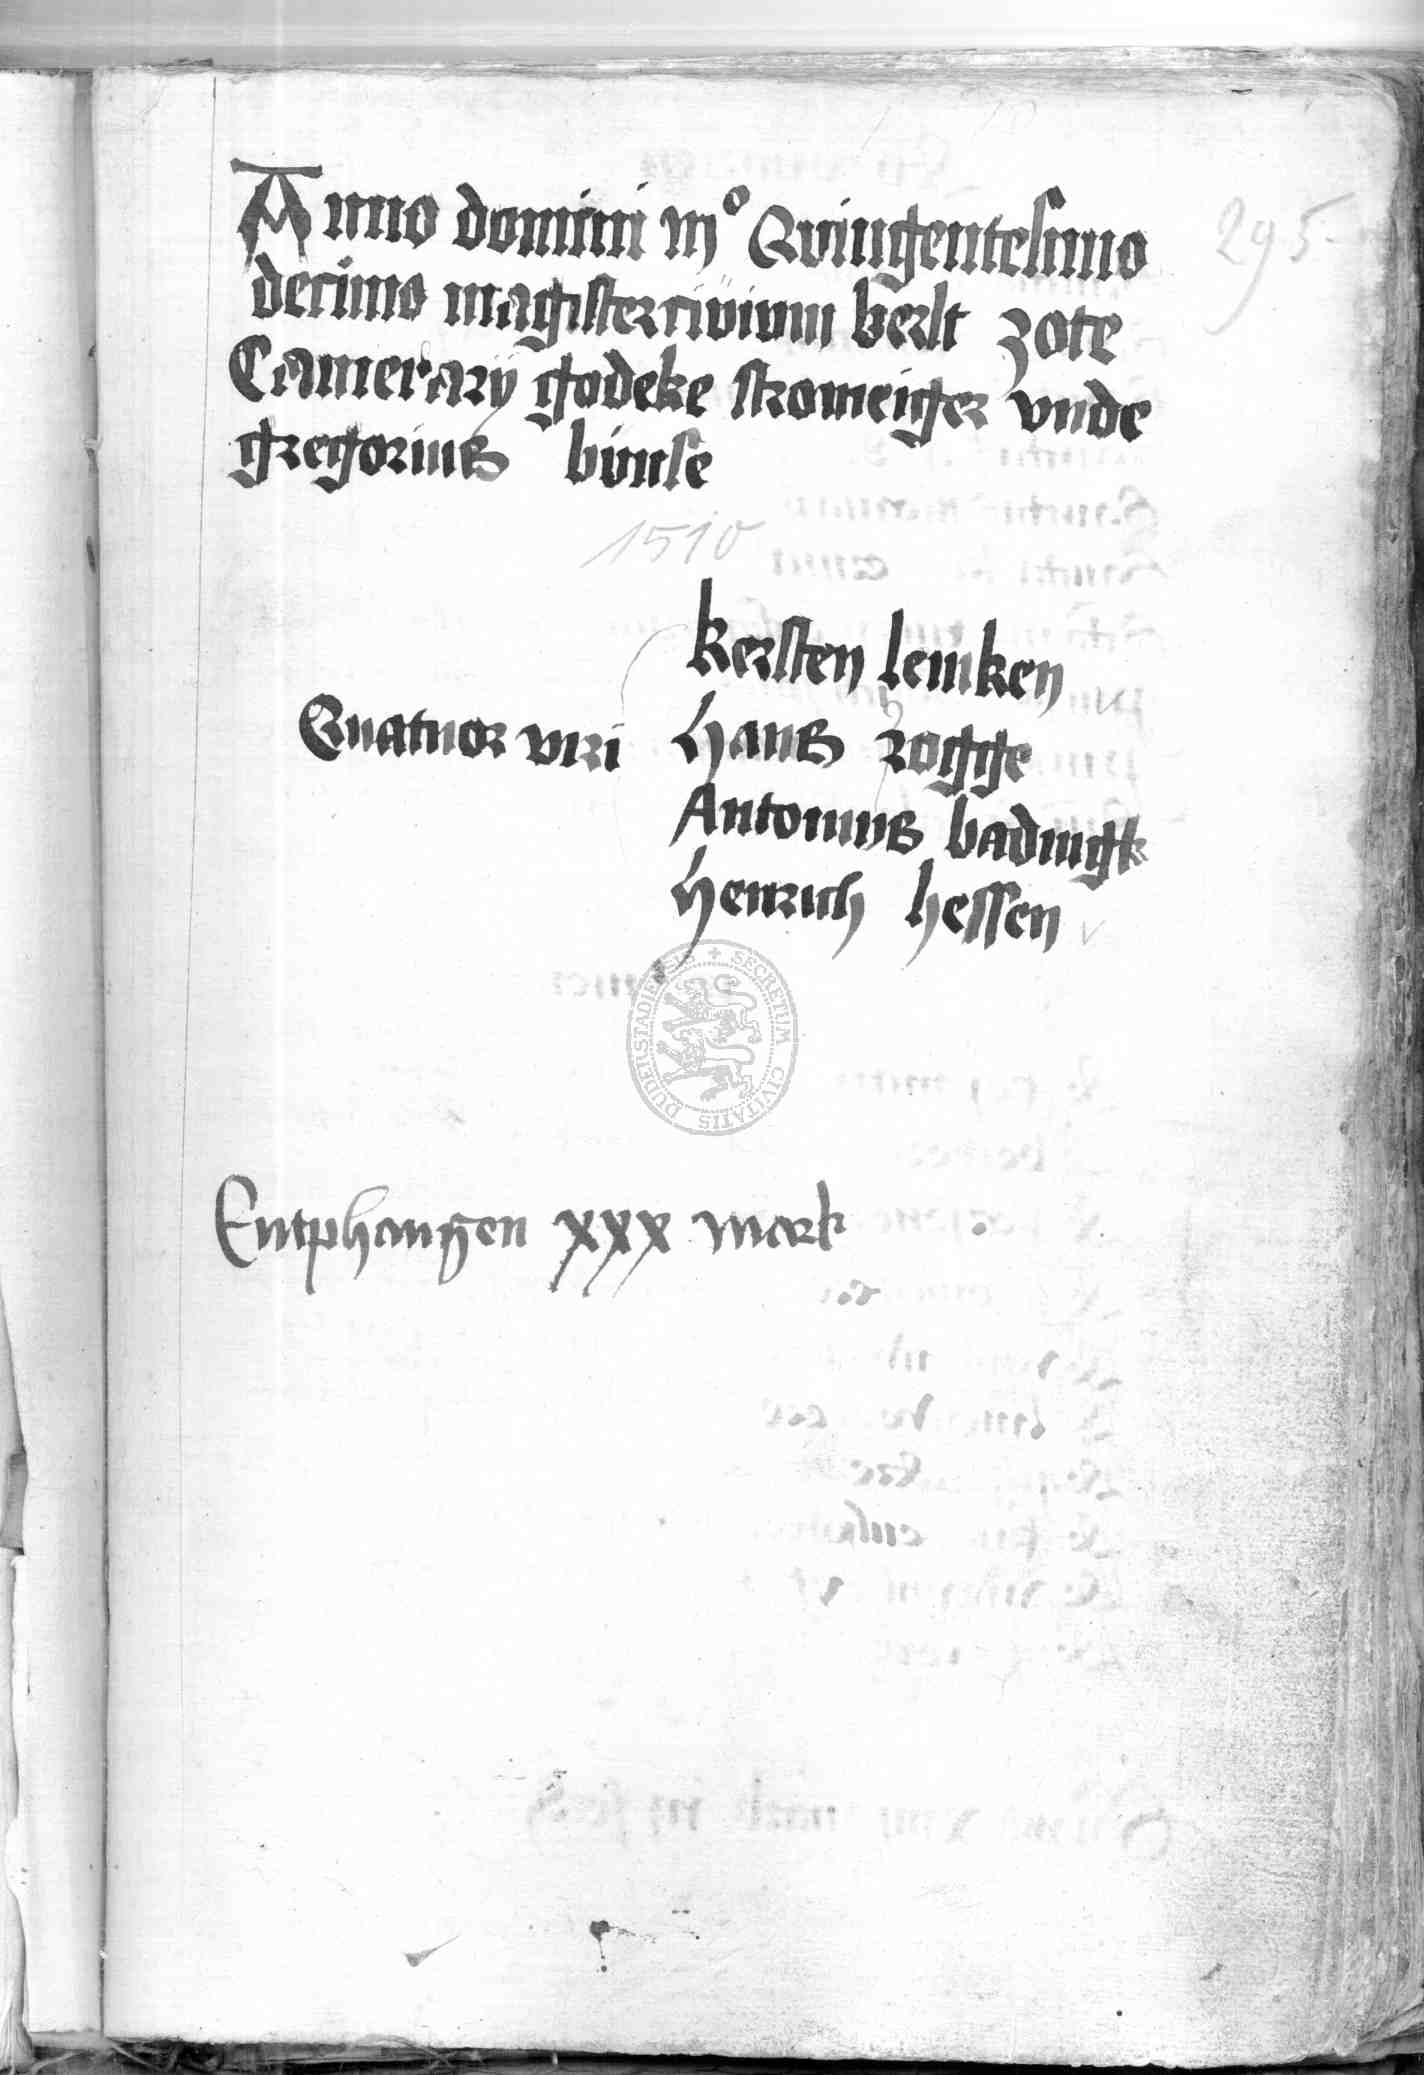 295
Anno domini mº Quingentesimo
decimo magister civium berlt zote
Camerarij godeke stromeiger vnde
gregorius bunse
1510
kersten lemken
Quatuor viri hans rogge
Antonius badingk
henrich hessen
SECRETUM CIVITATIS DUDERSTADIENSIS
Entphangen xxx mark